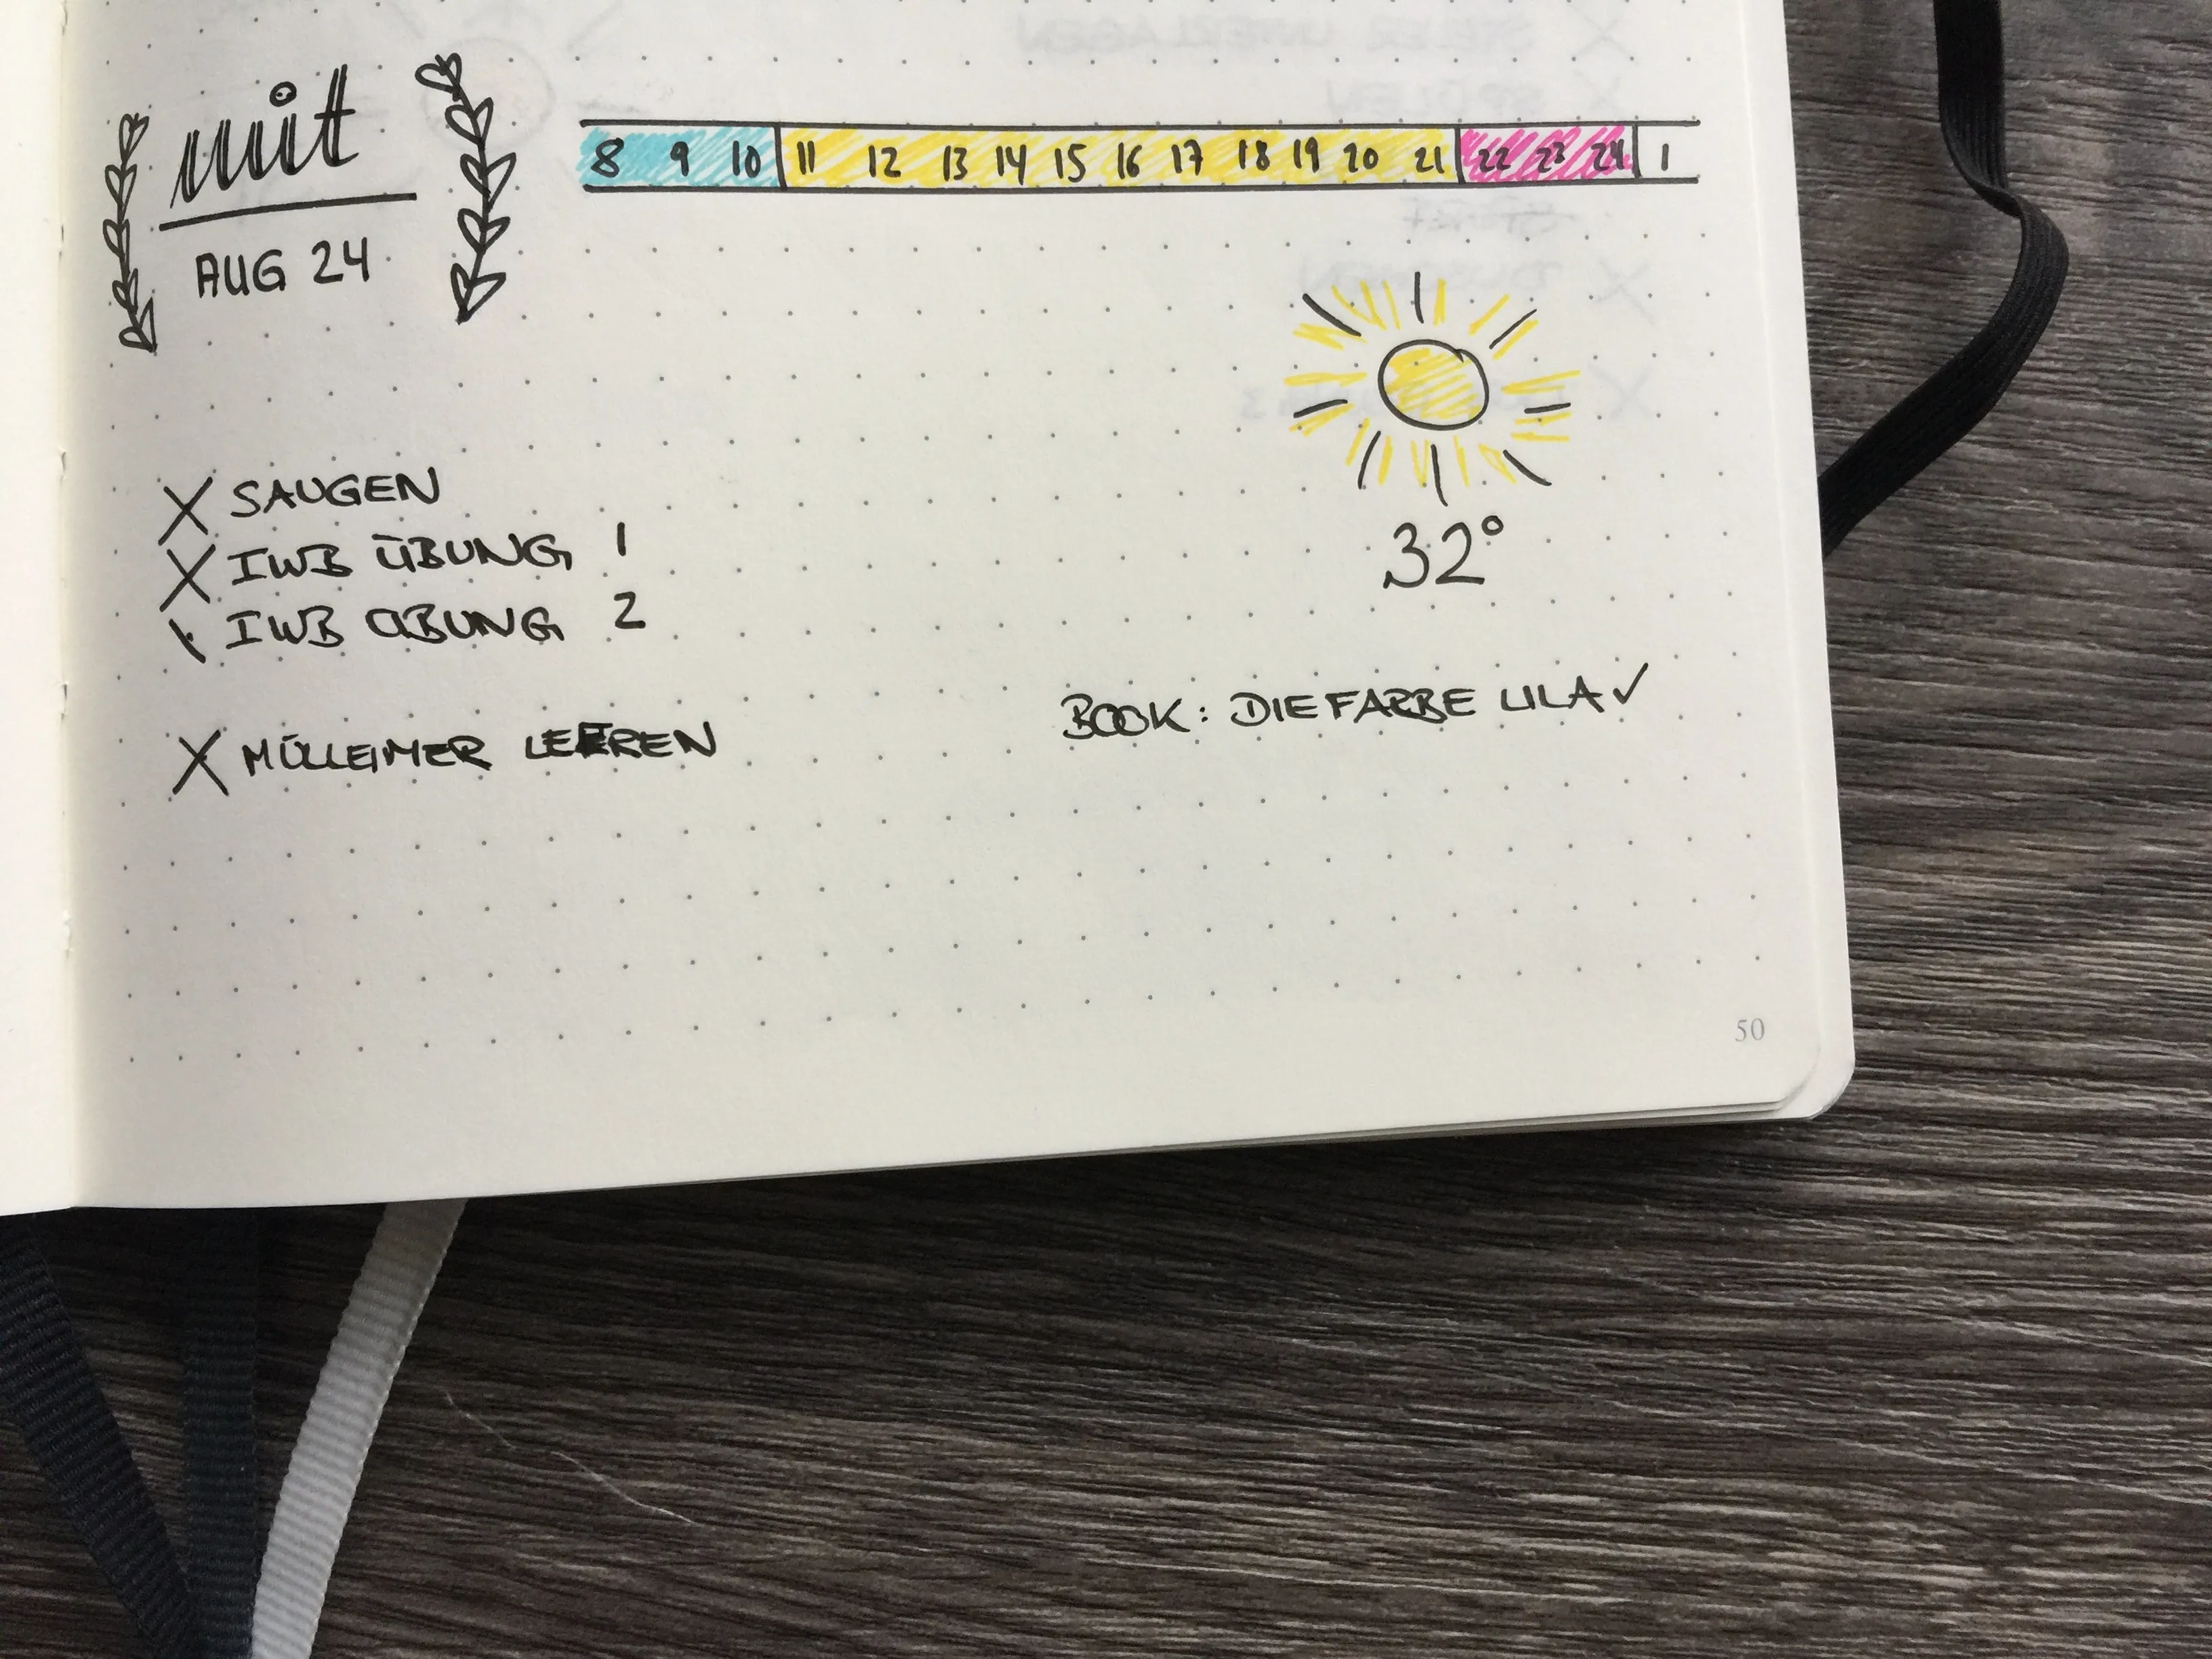 mit
AUG 24
8 9 10 11 12 13 14 15 16 17 18 19 20 21 22 23 24 1
X SAUGEN
X IWB ÜBUNG 1
\ IWB ÜBUNG 2
32°
BOOK: DIE FARBE LILA ✓
X MÜLLEIMER LEEREN
50